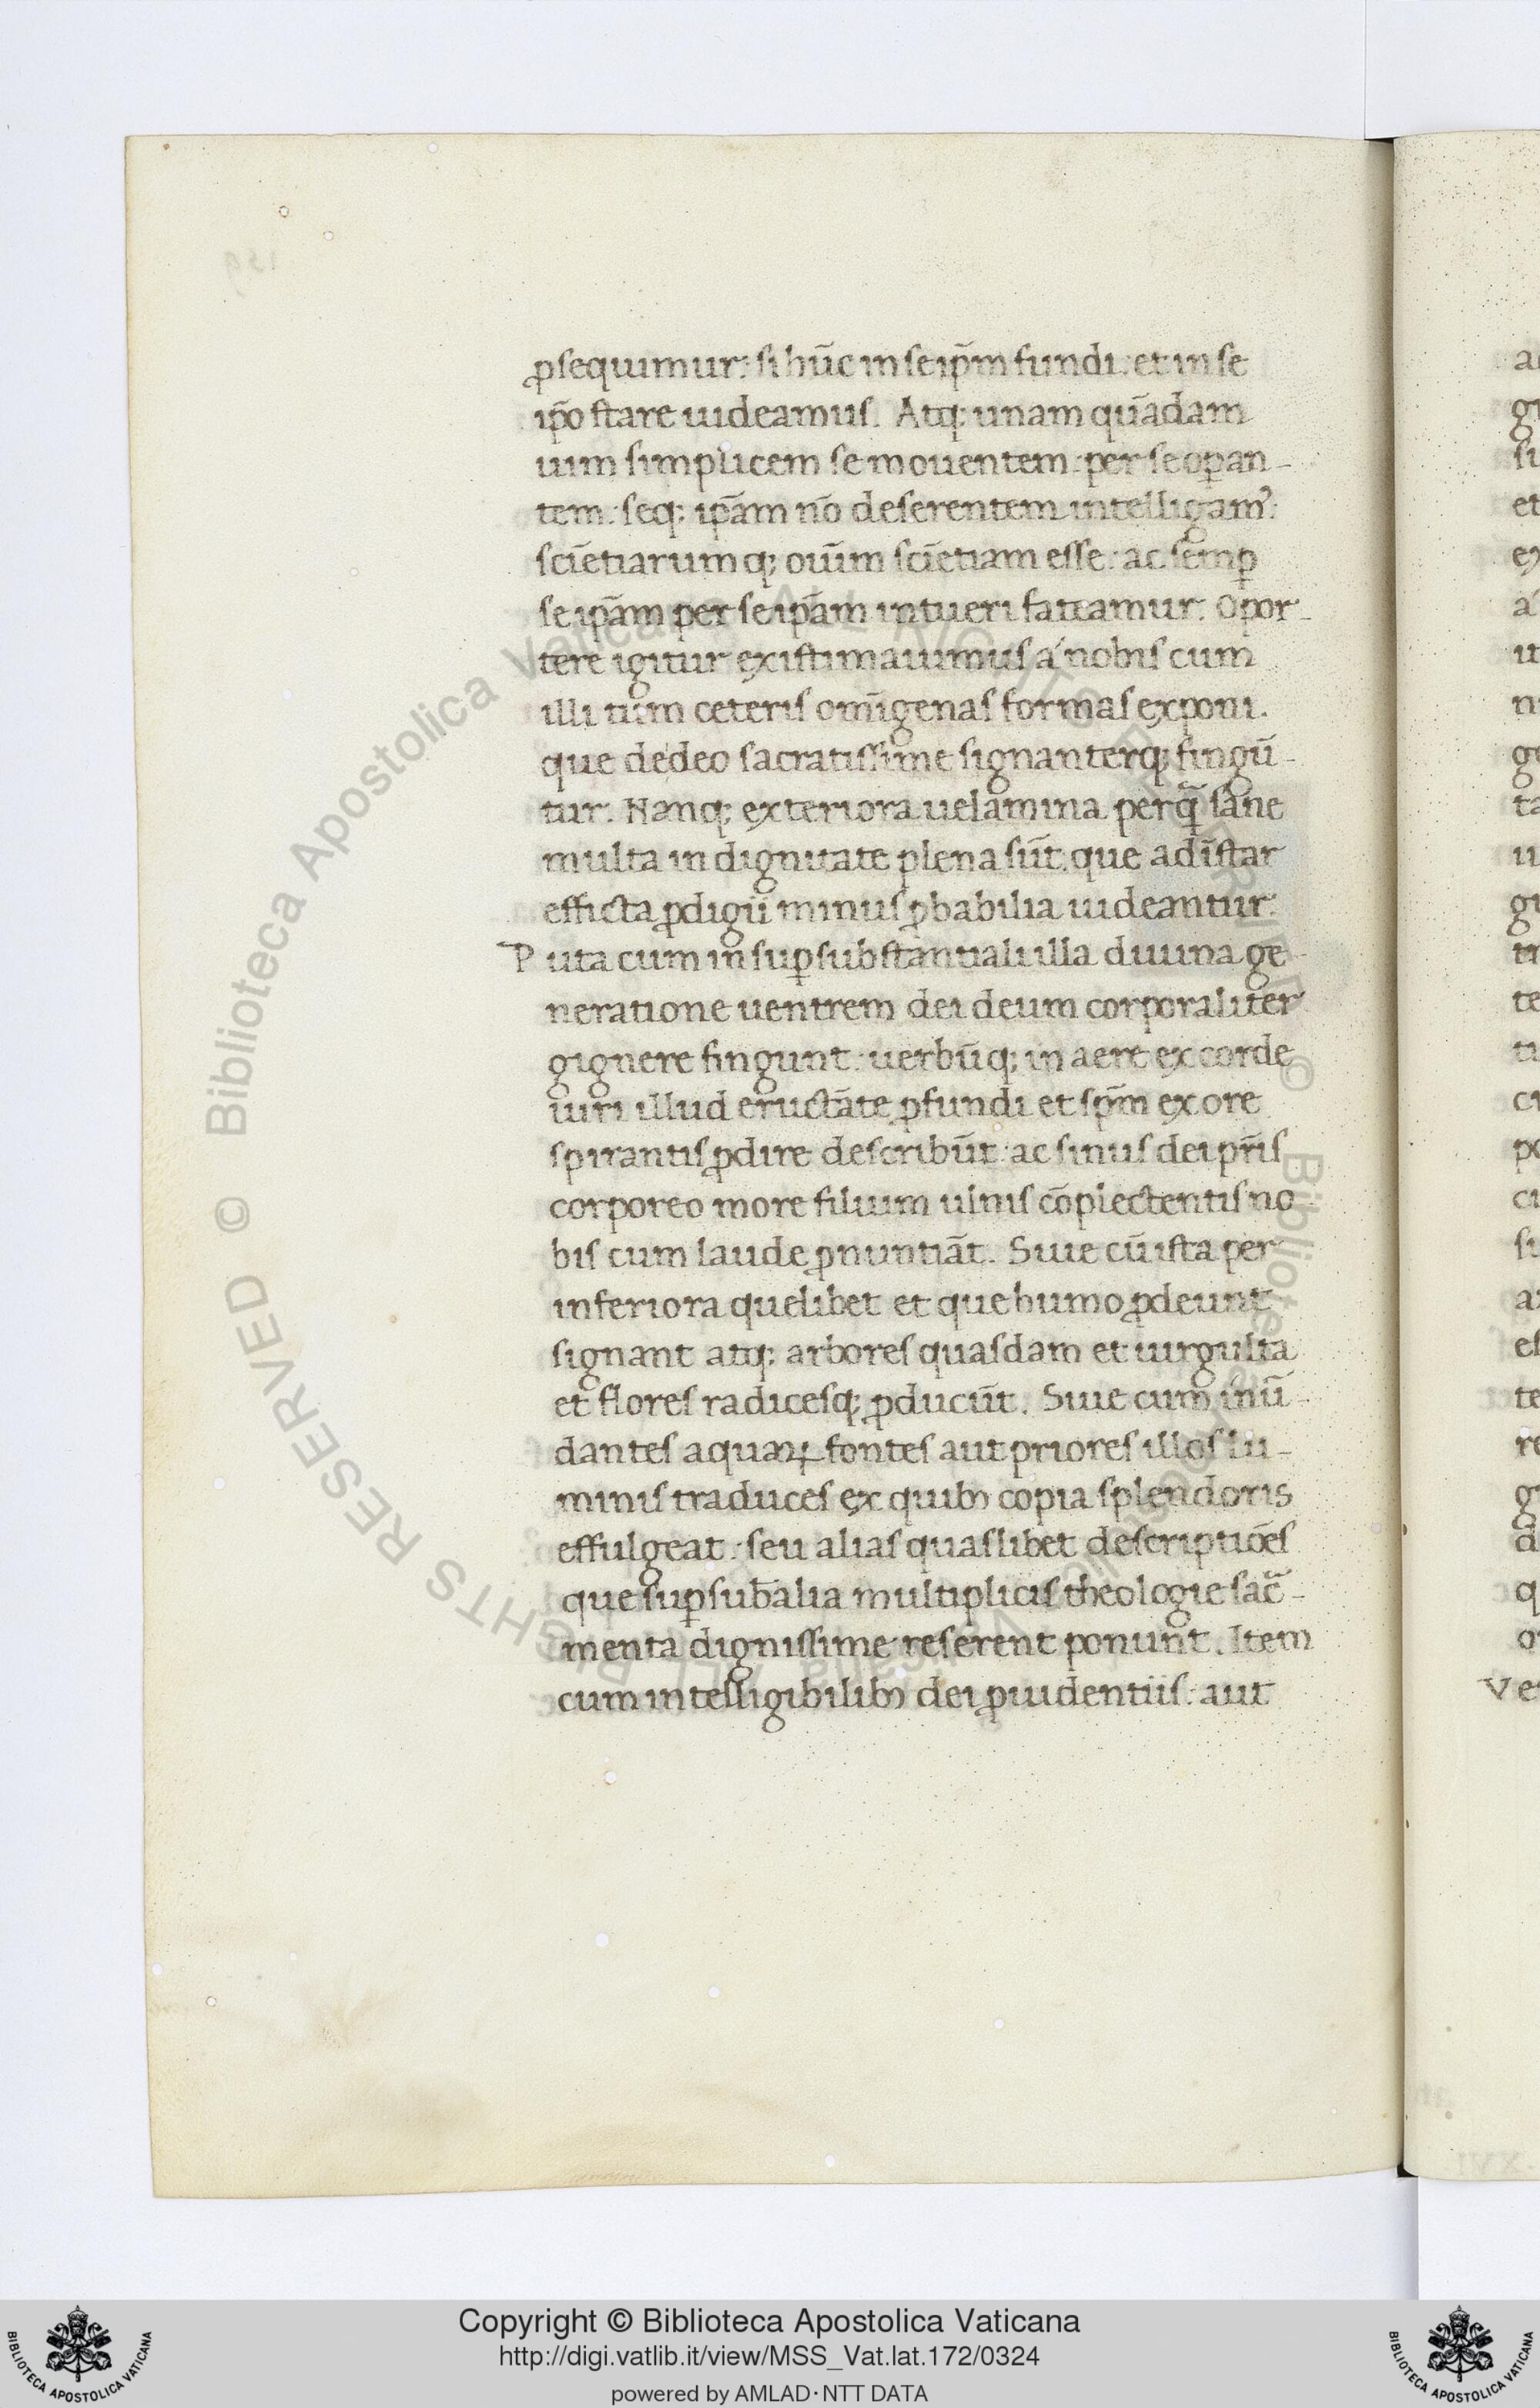 ꝓsequimur: si hūc in seip̄m fundi: et in se
ip̄o stare uideamus. Atq; unam quādam
uim simplicem se mouentem: per se oꝑan-
tem: seq; ip̄am nō deserentem intelligamꝰ:
sciētiarumq; oīum sciētiam esse: ac semꝑ
se ip̄am per se ip̄am intueri fateamur: Opor-
tere igitur existimauimus a nobis cum
illi tum ceteris om̄igenas formas exponi.
que de deo sacratissime signanterq; fingū-
tur. Nanq; exteriora uelamina perq̄ sane
multa indignitate plena sūt. que ad īstar
efficta ꝓdigii minus ꝓbabilia uideantur:
Puta cum in suꝑsubstantiali illa diuina ge-
neratione uentrem dei deum corporaliter
gignere fingunt: uerbūq; in aere ex corde
uiri illud eructāte ꝓfundi et sp̄m ex ore
spirantis ꝓdire describūt: ac sinus dei pr̄is
corporeo more filium ulnis cōplectentis no
bis cum laude ꝓnuntiāt. Siue cū ista per
inferiora quelibet et que humo ꝓdeunt
signant atq; arbores quasdam et uirgulta
et flores radicesq; ꝓducūt. Siue cum inū-
dantes aquaꝝ fontes aut priores illos lu-
minis traduces ex quibꝫ copia splendoris
effulgeat: seu alias quaslibet descriptiōes
que suꝑsub̄alia multiplicis theologie sac̄-
menta dignissime reserent ponunt. Item
cum intelligibilibꝫ dei ꝓuidentiis: aut
© Biblioteca Apostolica Vaticana ALL RIGHTS RESERVED
Copyright © Biblioteca Apostolica Vaticana
http://digi.vatlib.it/view/MSS_Vat.lat.172/0324
powered by AMLAD·NTT DATA
BIBLIOTECA APOSTOLICA VATICANA
BIBLIOTECA APOSTOLICA VATICANA